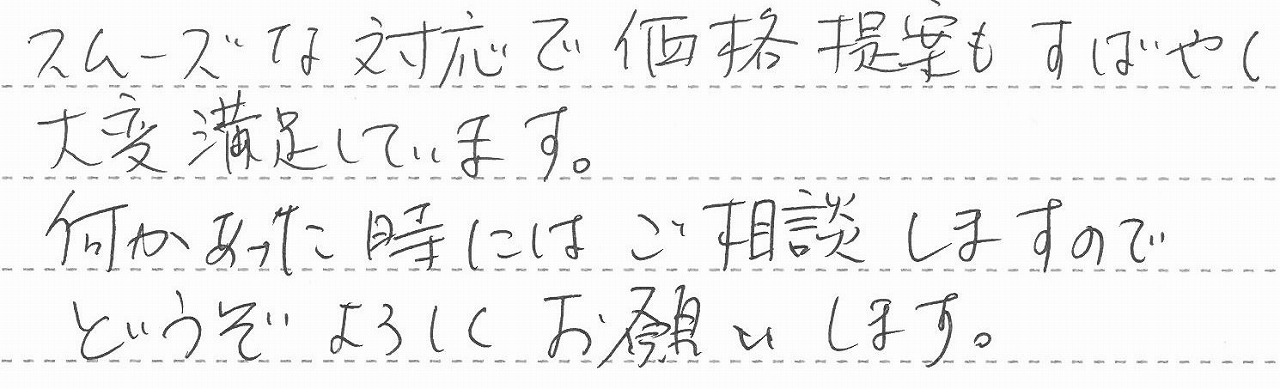 スムーズな対応で価格提案もすばやく
大変満足しています。
何かあった時にはご相談しますので
どうぞよろしくお願いします。